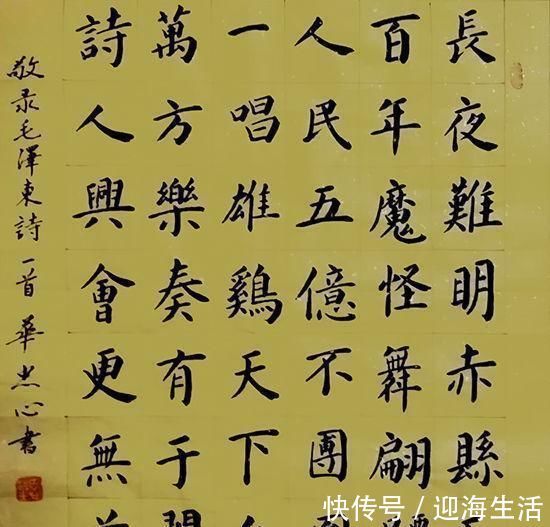 長夜難明赤縣
百年魔怪舞翩
人民五億不團
一唱雄鷄天下
萬方樂奏有于
詩人興會更無
敬录毛澤東詩一首 華心書
快传号/迎海生活